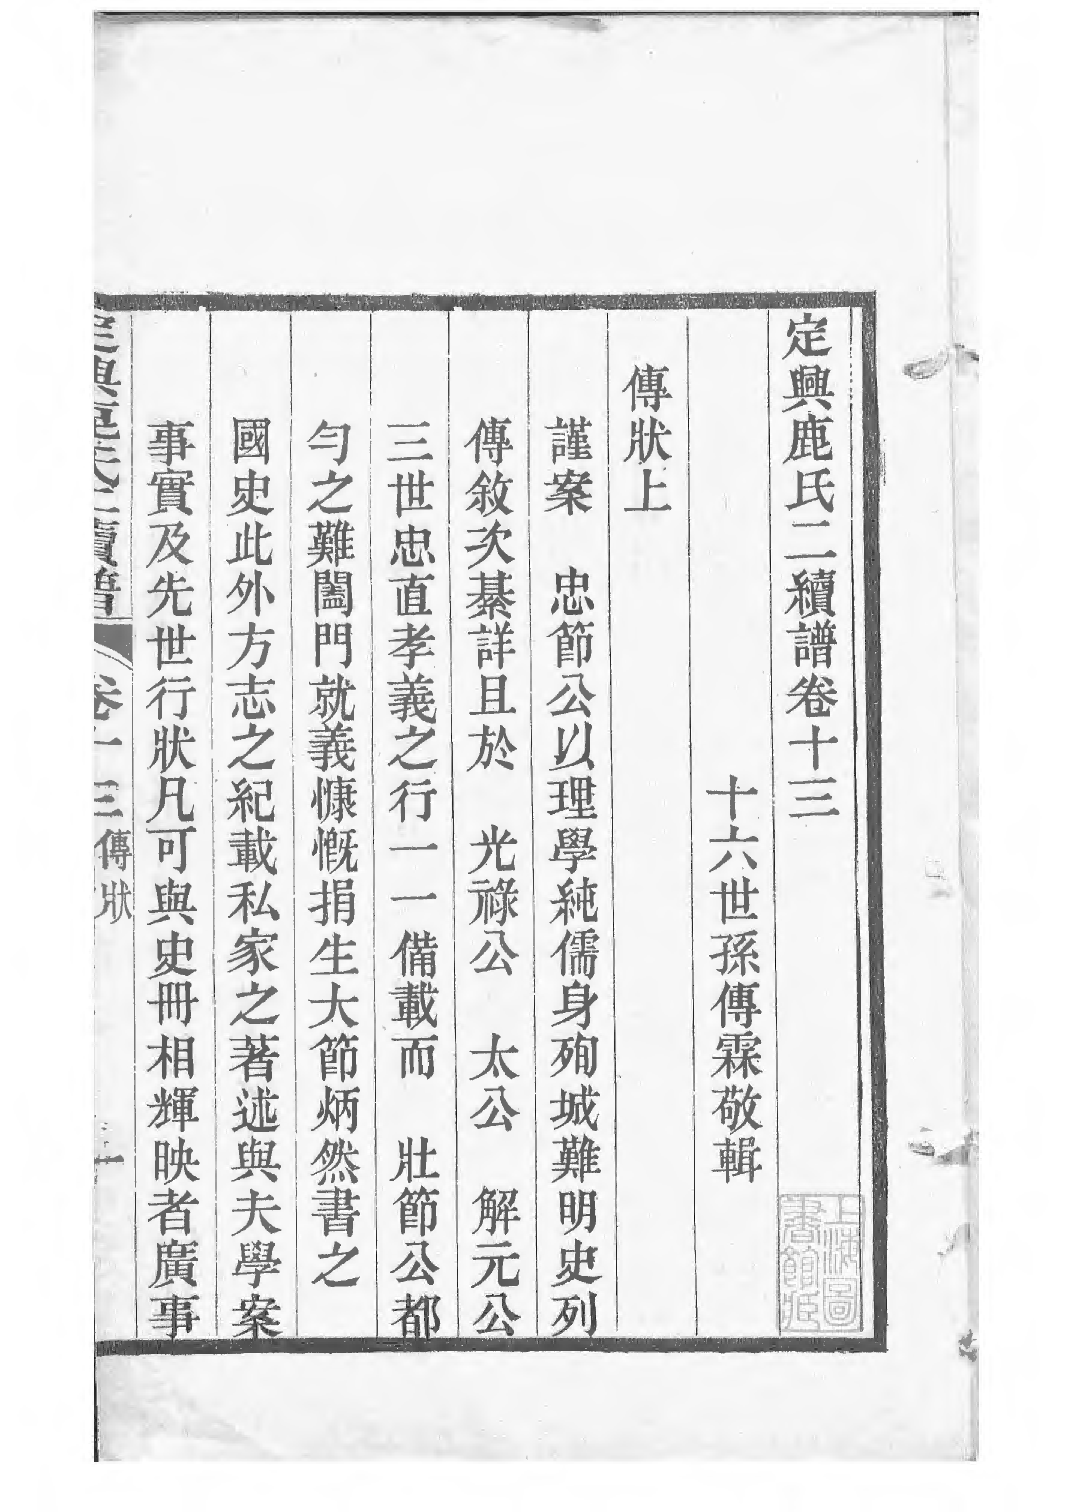 定興鹿氏二續譜卷十三
十六世孫傳霖敬輯
傳狀上
謹案　忠節公以理學純儒身殉城難明史列
傳敘次綦詳且於　光祿公　太公　解元公
三世忠直孝義之行一一備載而　壯節公都
勻之難闔門就義慷慨捐生大節炳然書之
國史此外方志之紀載私家之著述與夫學案
事實及先世行狀凡可與史冊相輝映者廣事
定興鹿氏二續譜　卷十三　傳狀　一
上海圖書館藏